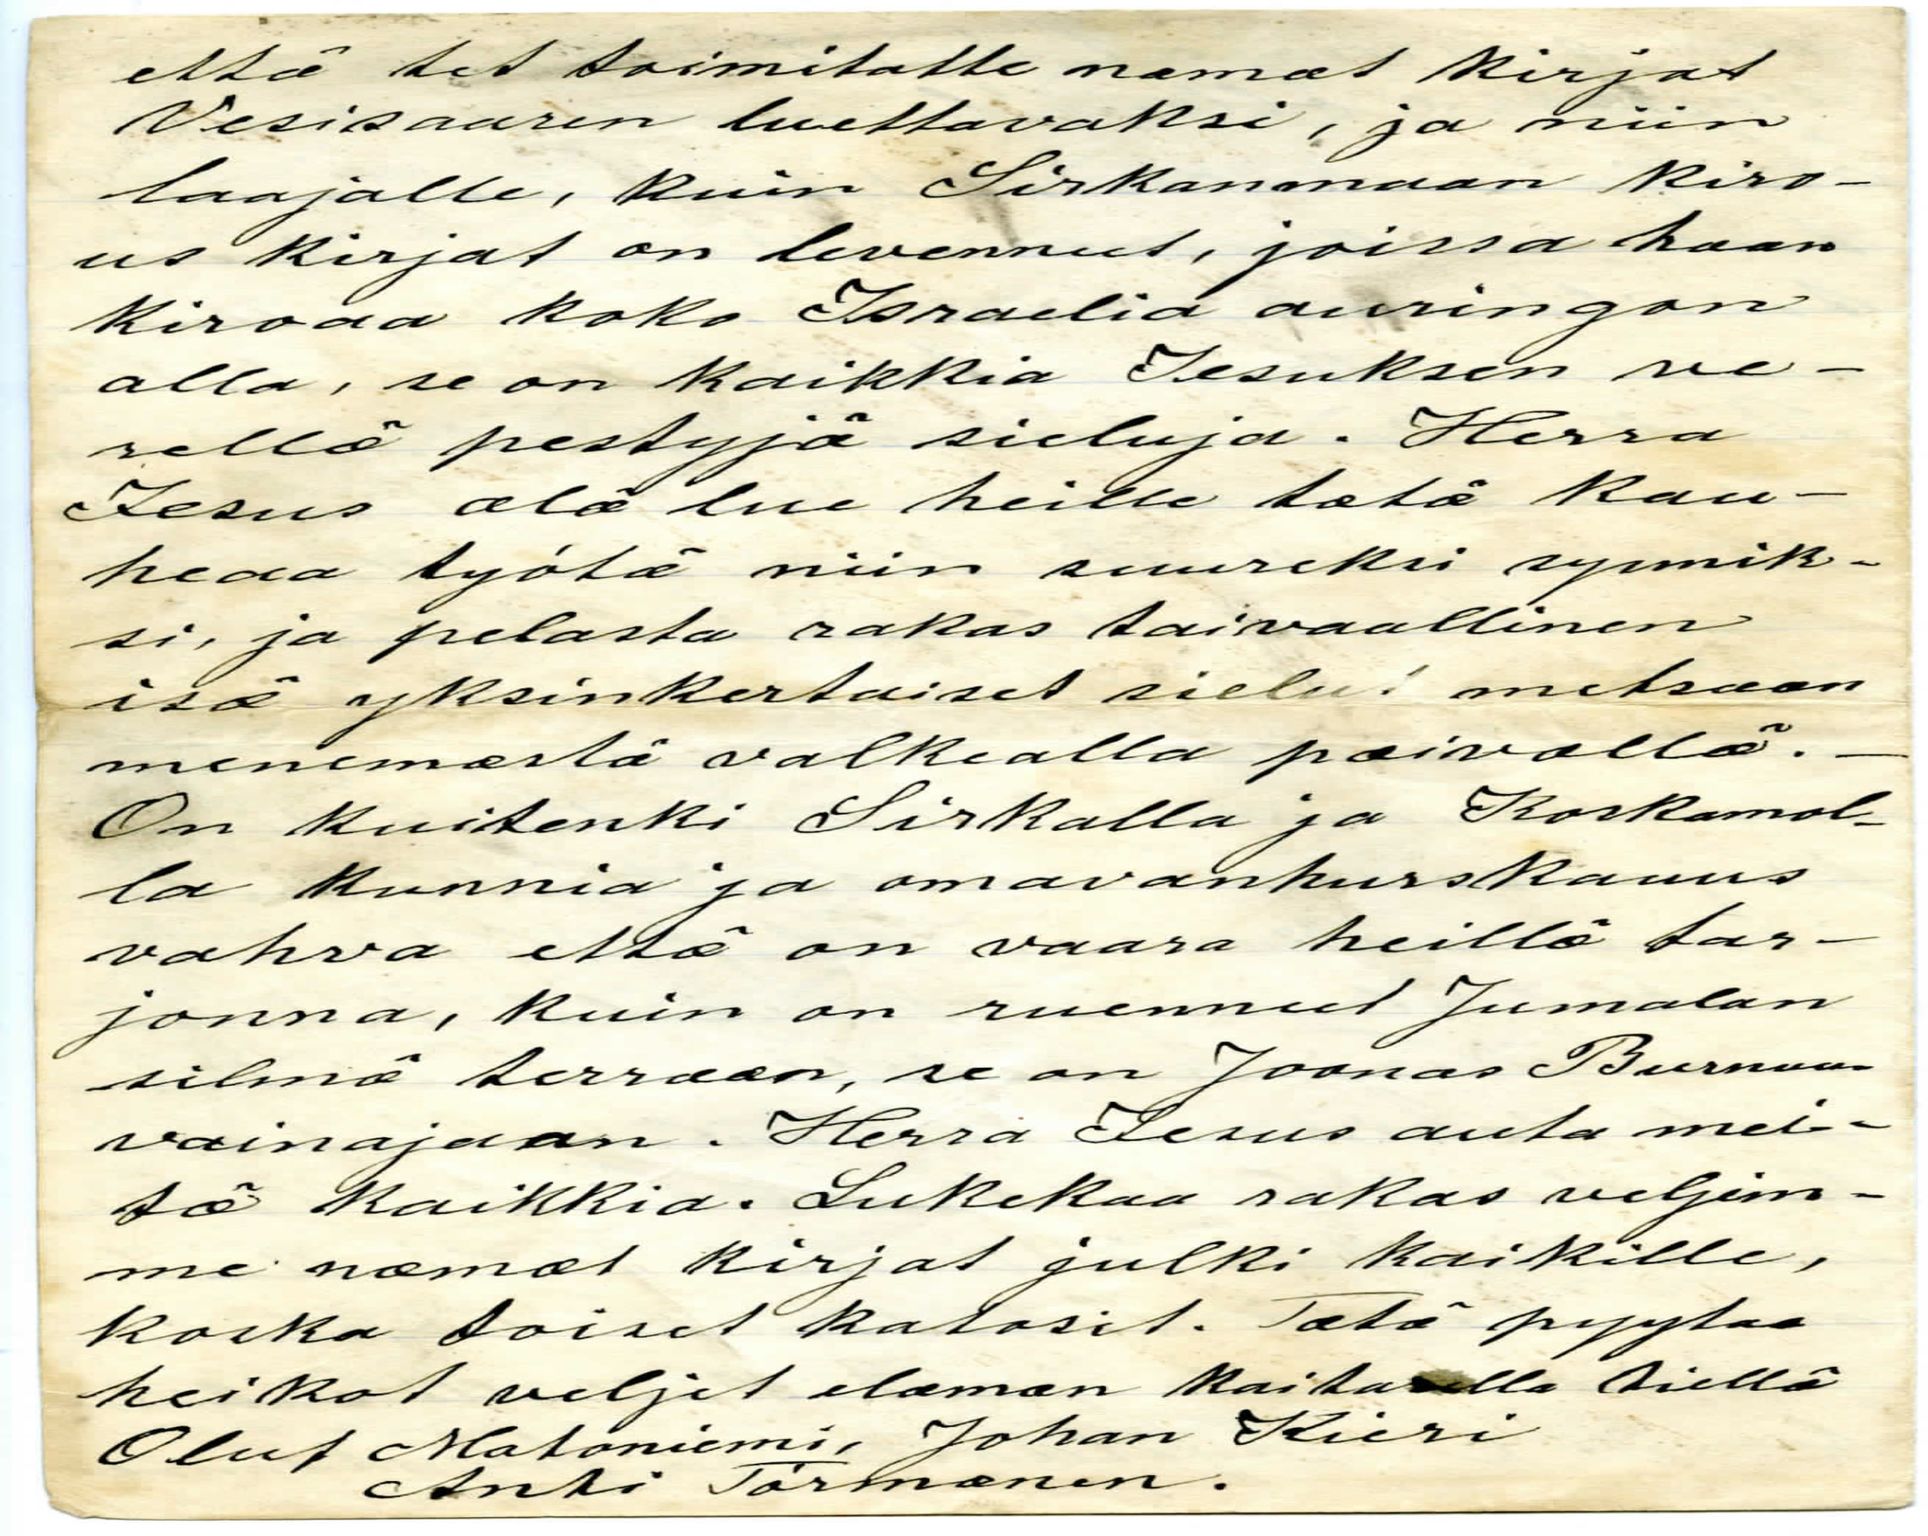 että tet toimitatte næmæt kirjat
Vesisaaren luettavaksi, ja niin
laajalle, kuin Sirkanmaan kiro-
us kirjat on levenneet, joissa hæan
kiroaa koko Israelia auringon
alla, se on kaikkia Jesuksen ve-
rellä pestyjä sieluja. Herra
Jesus ælä lue heille tætä kau-
heaa työtä niin suureksi synnik-
si, ja pelasta rakas taivaallinen
isä yksinkertaiset sielut metsæan
menemæstä valkealla pæivællä. —
On kuitenki Sirkalla ja Koskamol-
la kunnia ja omavanhurskauus
vahva että on vaara heillä tar-
jonna, kuin on ruennut Jumalan
silmä terræan, se on Joonas
vainajaan. Herra Jesus auta mei-
tä kaikkia. Lukekaa rakas veljem-
me næmæt kirjat julki kaikille,
koska toiset katosit. Tætä pyytæa
heikot veljet elæmæn kaitasella tiellä
Oluf Matoniemi, Johan Kieri
Anti Törmænen.